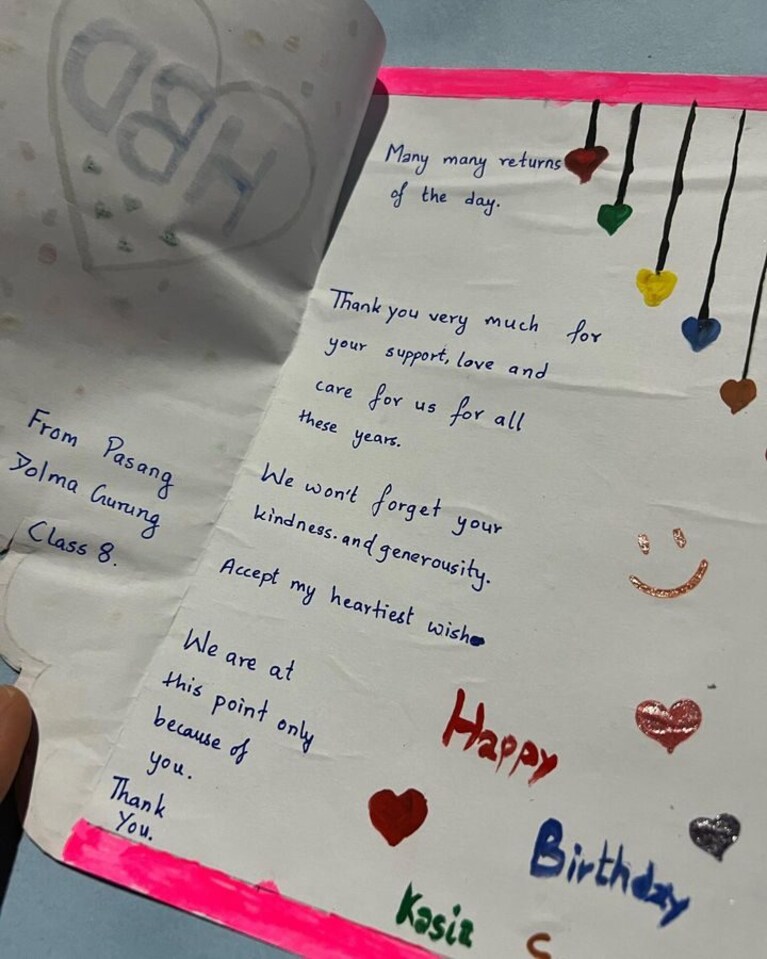 HBD
From Pasang
Dolma Gurung
Class 8.
Many many returns
of the day.
Thank you very much for
your support, love and
care for us for all
these years.
We won't forget your
kindness. and generousity.
Accept my heartiest wish
We are at
this point only
because of
you.
Thank
You.
Happy
Birthday
Kasia